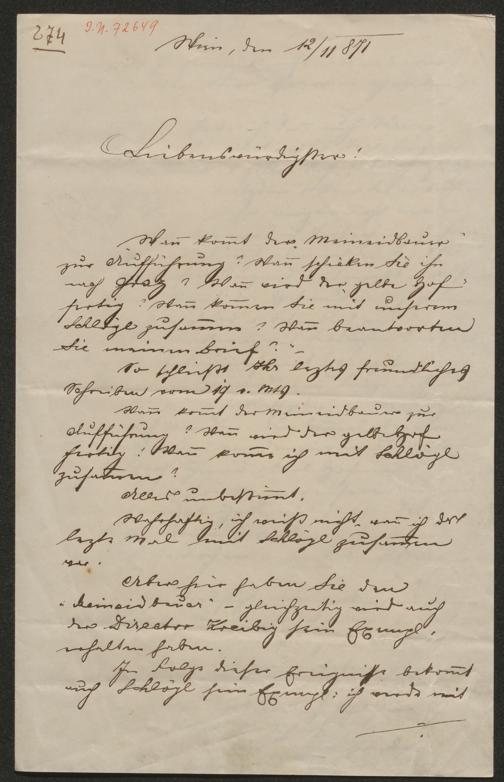 274
I.N. 72649
Wien, den 12/11 871
Liebenswürdigster!
"Wañ kom̄t der "Meineidbauer"
zur Aufführung? Wañ schicken Sie ihn
nach Graz? Wañ wird der gelbe Hof
fertig? Wañ kom̄en Sie mit unserem
Schlögl zusam̄en? Wañ beantworten
Sie meinen Brief?"
So schließt Ihr letztes freundliches
Schreiben vom 19 v. Mts.
Wañ kom̄t der Meineidbauer zur
Aufführung? Wañ wird der gelbe Hof
fertig? Wañ kom̄e ich mit Schlögl
zusam̄en?
Alles unbestim̄t.
Wahrhaftig, ich weiß nicht, wañ ich das
letzte Mal mit Schlögl zusam̄en
war.
Aber hier haben Sie den
"Meineidbauer" – gleichzeitig wird auch
der Director Kreibig sein Exempl.
erhalten haben.
In Folge dieser Ereigniße bekom̄t
auch Schlögl sein Exempl: ich werde mit